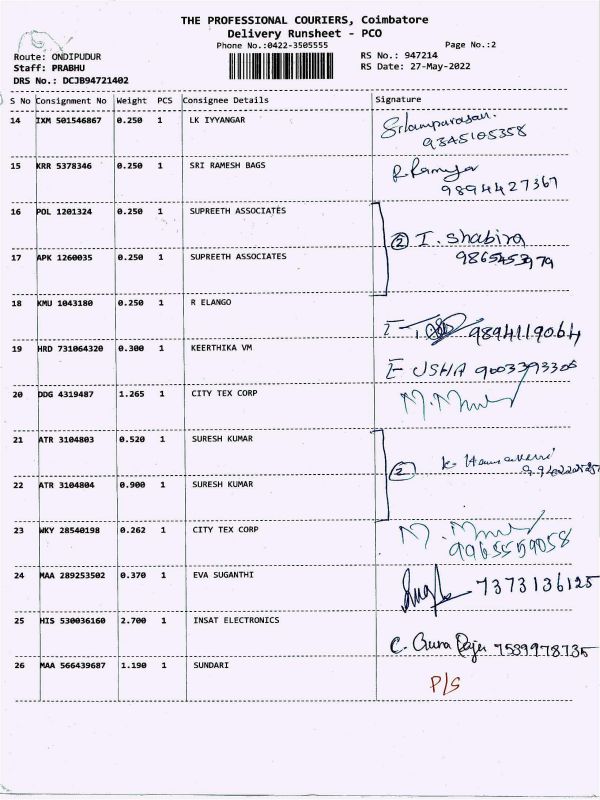 THE PROFESSIONAL COURIERS, Coimbatore
Delivery Runsheet - PCO
Phone No.:0422-3505555
Page No.:2
Route: ONDIPUDUR
RS No.: 947214
Staff: PRABHU
RS Date: 27-May-2022
DRS No.: DCJB94721402
S No Consignment No Weight PCS Consignee Details Signature
14 IXM 501546867 0.250 1 LK IYYANGAR
9345105358
15 KRR 5378346 0.250 1 SRI RAMESH BAGS R. Ramya
9894427367
16 POL 1201324 0.250 1 SUPREETH ASSOCIATES
② I. Shabira
17 APK 1260035 0.250 1 SUPREETH ASSOCIATES 9865453979
18 KMU 1043180 0.250 1 R ELANGO
9894119064
19 HRD 731064320 0.300 1 KEERTHIKA VM
E USHA 9003393305
20 DDG 4319487 1.265 1 CITY TEX CORP
21 ATR 3104803 0.520 1 SURESH KUMAR
②
22 ATR 3104804 0.900 1 SURESH KUMAR
23 WKY 28540198 0.262 1 CITY TEX CORP
9965559058
24 MAA 289253502 0.370 1 EVA SUGANTHI 7373136125
25 HIS 530036160 2.700 1 INSAT ELECTRONICS
C. Guna 7539978735
26 MAA 566439687 1.190 1 SUNDARI
P/S